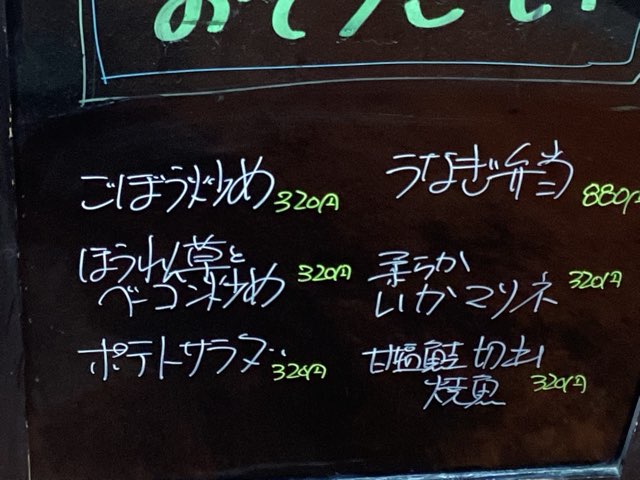 ごぼう炒め 320円
ほうれん草と
ベーコン炒め 320円
ポテトサラダ 320円
うなぎ弁当 880円
柔らか
いかマリネ 320円
甘塩鮭切出
焼魚 320円